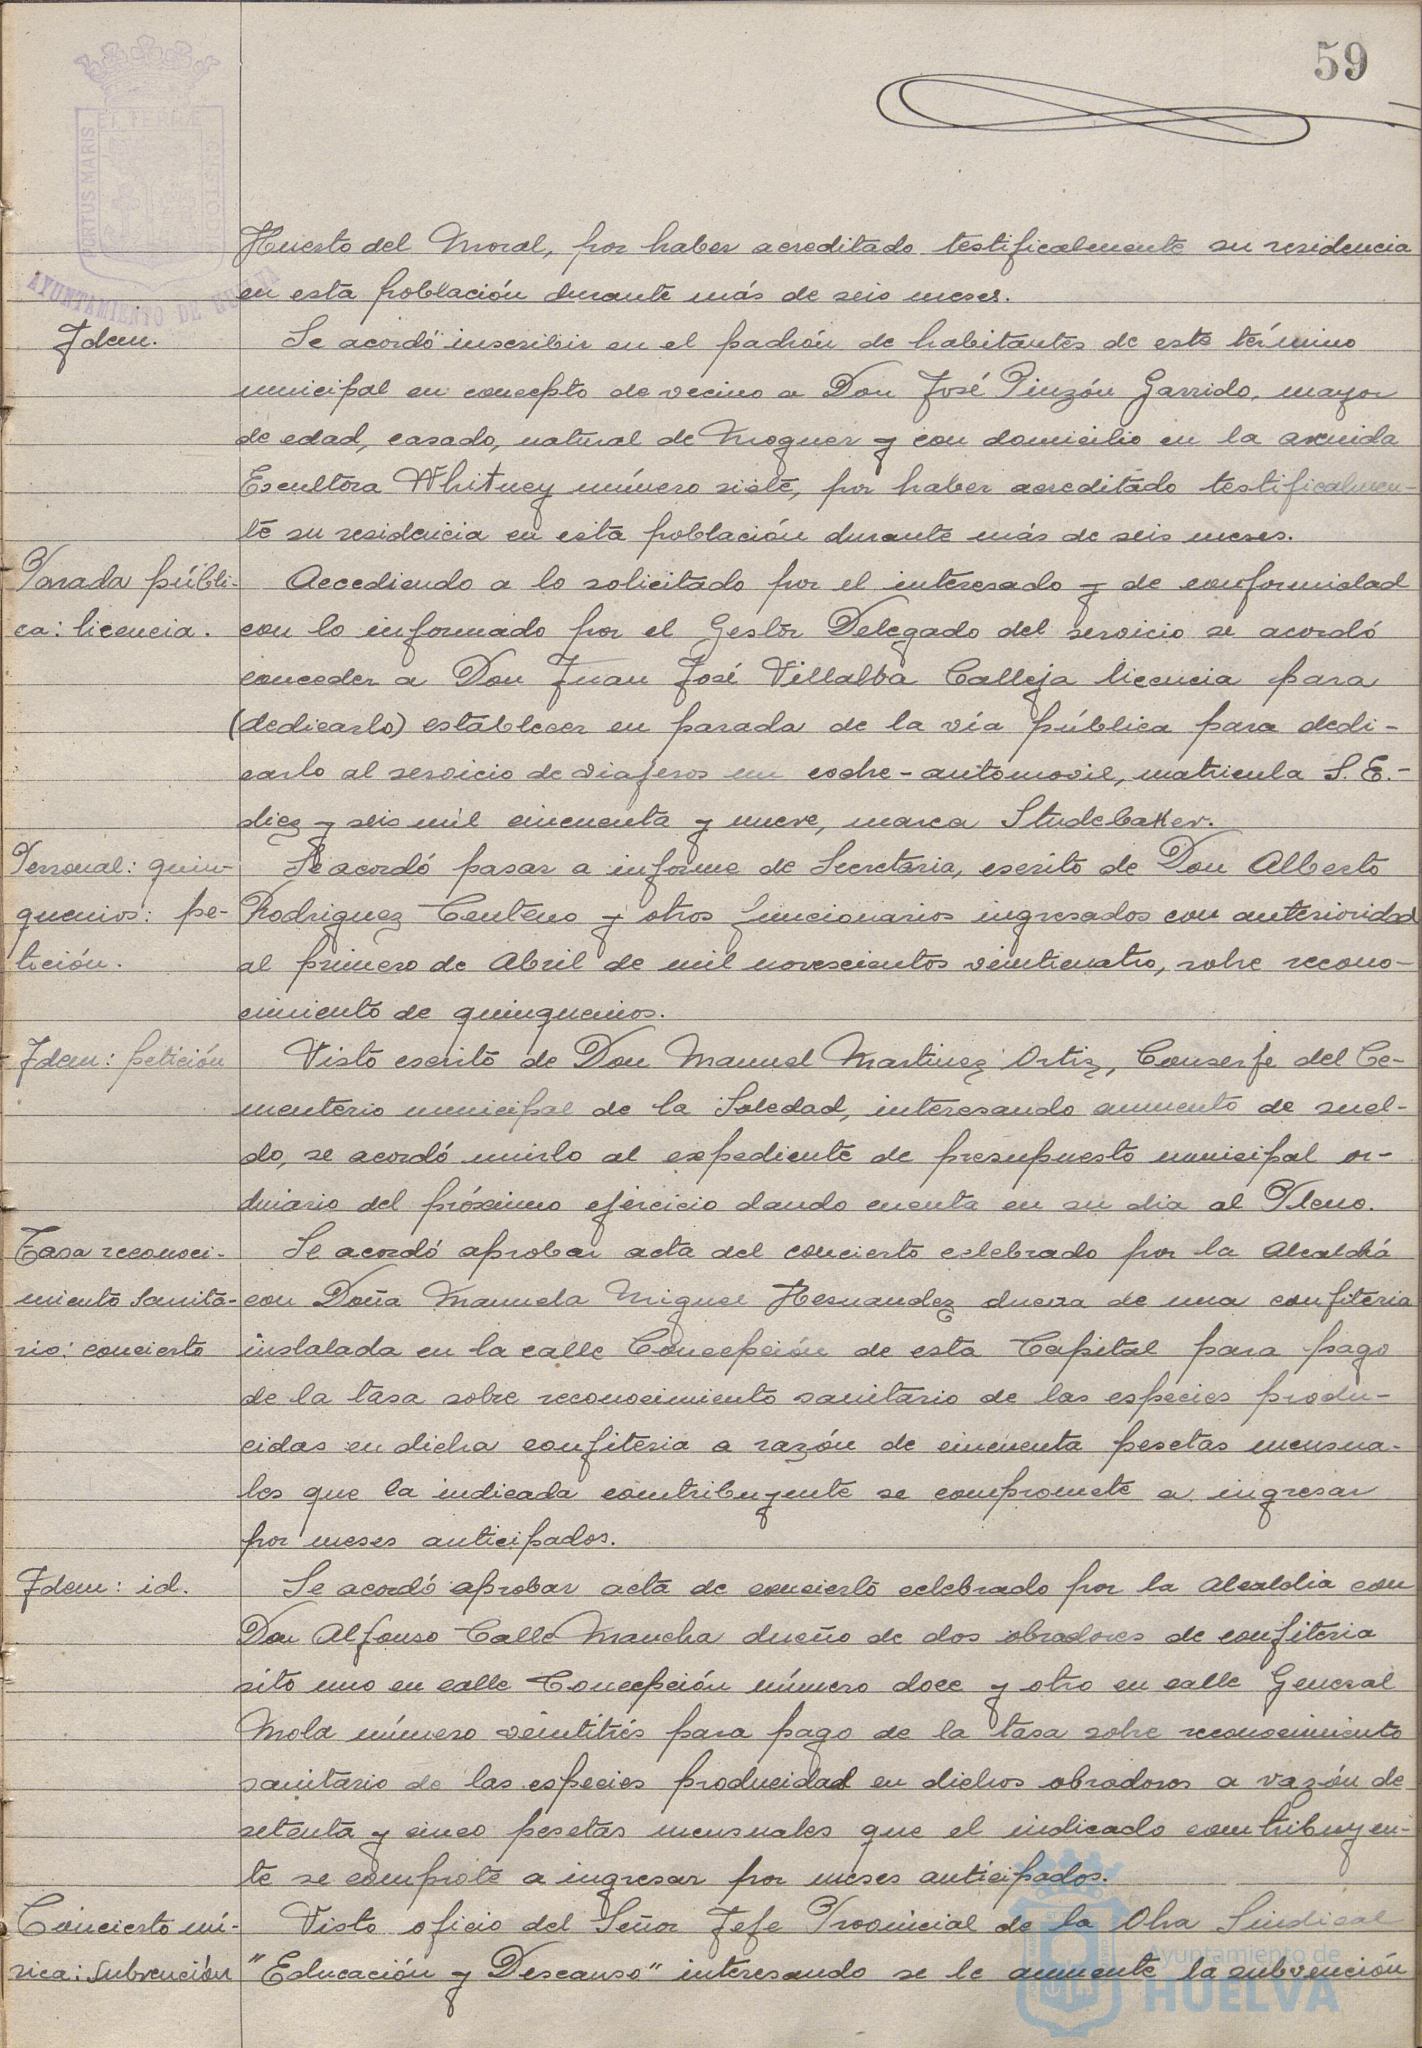 59
PORTUS MARIS
ET TERRÆ
CUSTODIA
AYUNTAMIENTO DE HUELVA
Huerto del Moral, por haber acreditado testificalmente su residencia
en esta población durante más de seis meses.
Idem.
Se acordó inscribir en el padrón de habitantes de este término
municipal en concepto de vecino a Don José Pinzón Garrido, mayor
de edad, casado, natural de Moguer y con domicilio en la avenida
Escultora Whitney número siete, por haber acreditado testificalmen-
te su residencia en esta población durante más de seis meses.
Parada públi-
ca: licencia.
Accediendo a lo solicitado por el interesado y de conformidad
con lo informado por el Gestor Delegado del servicio se acordó
conceder a Don Juan José Villalba Calleja licencia para
(dedicarlo) establecer en parada de la vía pública para dedi-
carlo al servicio de viajeros un coche-automovil, matricula S.E.-
diez y seis mil cincuenta y nueve, marca Studebaker.
Personal: quin-
quenios: pe-
tición.
Se acordó pasar a informe de Secretaria, escrito de Don Alberto
Rodriguez Centeno y otros funcionarios ingresados con anterioridad
al primero de Abril de mil novescientos veinticuatro, sobre recono-
cimiento de quinquenios.
Idem: petición
Visto escrito de Don Manuel Martinez Ortiz, Conserje del Ce-
menterio municipal de la Soledad, interesando aumento de suel-
do, se acordó unirlo al expediente de presupuesto municipal or-
dinario del próximo ejercicio dando cuenta en su dia al Pleno.
Tasa reconoci-
miento sanita-
rio: concierto
Se acordó aprobar acta del concierto celebrado por la Alcaldía
con Doña Manuela Miguel Hernandez dueña de una confiteria
instalada en la calle Concepción de esta Capital para pago
de la tasa sobre reconocimiento sanitario de las especies produ-
cidas en dicha confiteria a razón de cincuenta pesetas mensua-
les que la indicada contribuyente se compromete a ingresar
por meses anticipados.
Idem: id.
Se acordó aprobar acta de concierto celebrado por la Alcaldia con
Don Alfonso Calle Mancha dueño de dos obradores de confiteria
sito uno en calle Concepción número doce y otro en calle General
Mola número veintitrés para pago de la tasa sobre reconocimiento
sanitario de las especies producidad en dichos obradores a razón de
setenta y cinco pesetas mensuales que el indicado contribuyen-
te se comprote a ingresar por meses anticipados.
Concierto mú-
sica: subvención
Visto oficio del Señor Jefe Provincial de la Obra Sindical
"Educación y Descanso" interesando se le aumente la subvención
Ayuntamiento de
HUELVA